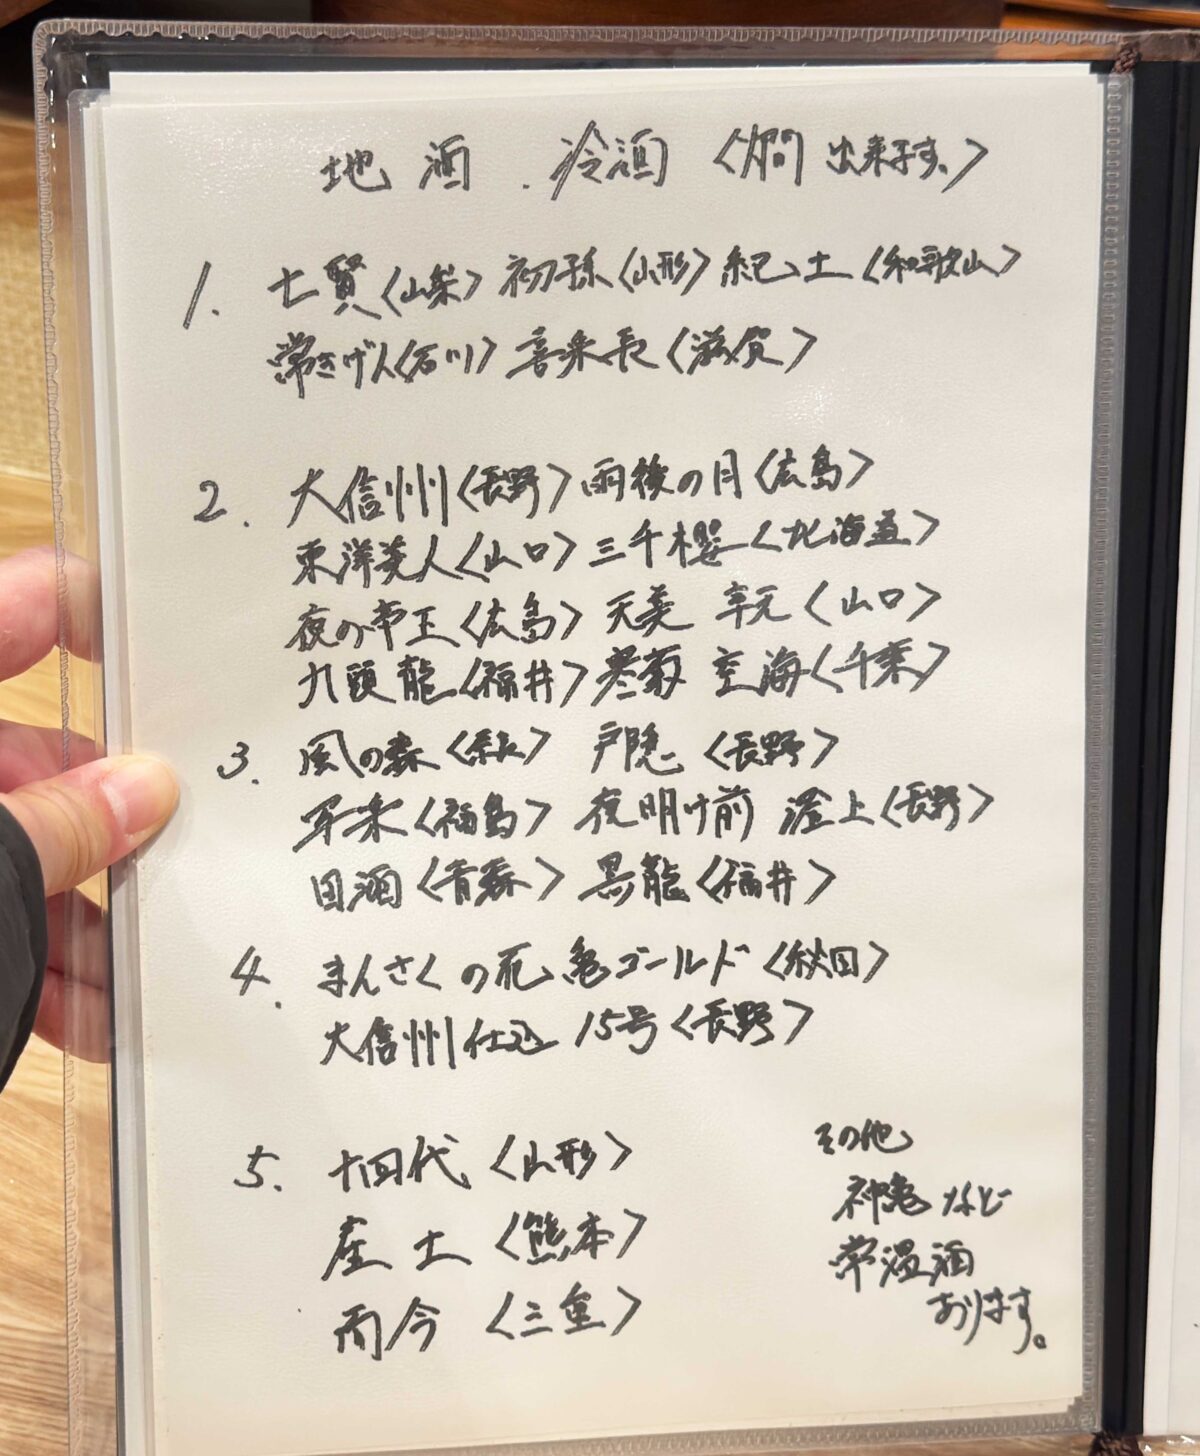 地酒 . 冷酒 〈燗 出来ます。〉
1. 七賢〈山梨〉 初孫〈山形〉 紀土〈和歌山〉
常きげん〈石川〉 喜楽長〈滋賀〉
2. 大信州〈長野〉 雨後の月〈広島〉
東洋美人〈山口〉 三千櫻〈北海道〉
夜の帝王〈広島〉 天美 〈山口〉
九頭龍〈福井〉 寒菊 空海〈千葉〉
3. 風の森〈奈良〉 戸隠〈長野〉
写楽〈福島〉 夜明け前 澄上〈長野〉
田酒〈青森〉 黒龍〈福井〉
4. まんさくの花 亀ゴールド〈秋田〉
大信州 仕込 15号〈長野〉
5. 十四代〈山形〉
産土〈熊本〉
而今〈三重〉
その他
神亀など
常温酒
あります。